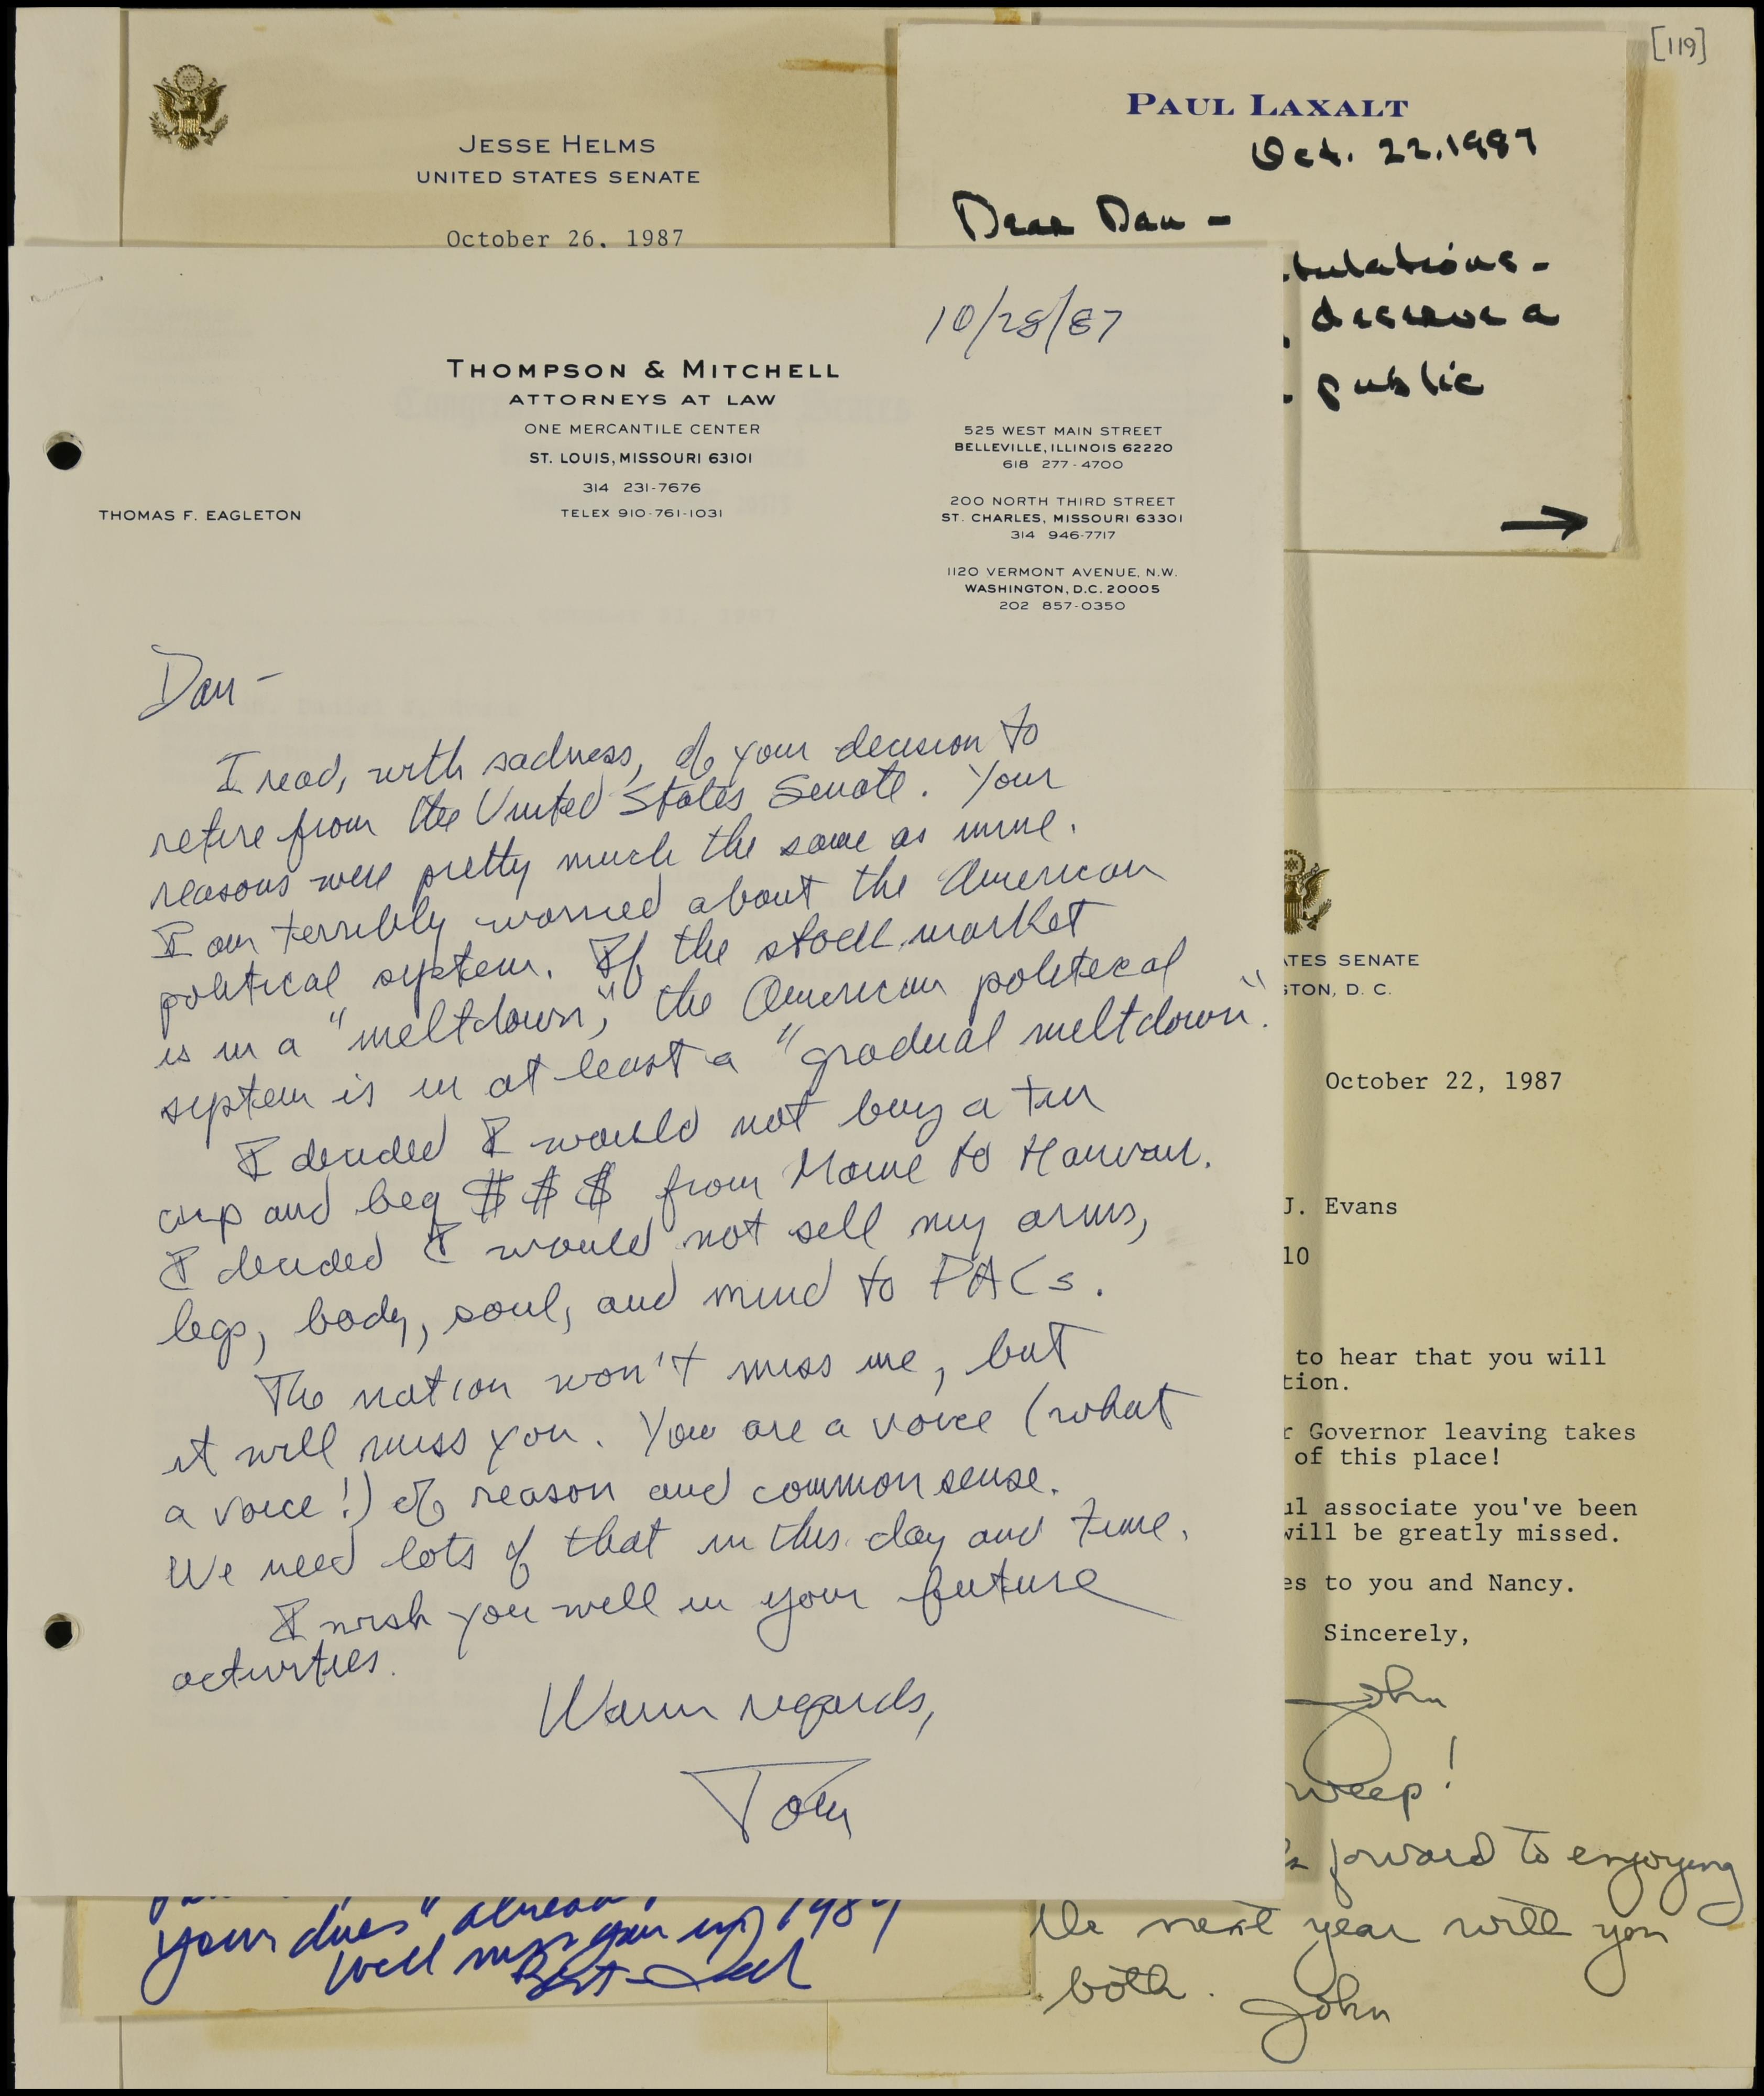 [119]
JESSE HELMS
UNITED STATES SENATE
October 26, 1987
PAUL LAXALT
Oct. 22, 1987
Dear Dan -
tulations -
deserve a
public
→
10/28/87
THOMPSON & MITCHELL
ATTORNEYS AT LAW
ONE MERCANTILE CENTER
ST. LOUIS, MISSOURI 63101
314 231-7676
TELEX 910-761-1031
THOMAS F. EAGLETON
525 WEST MAIN STREET
BELLEVILLE, ILLINOIS 62220
618 277-4700
200 NORTH THIRD STREET
ST. CHARLES, MISSOURI 63301
314 946-7717
1120 VERMONT AVENUE, N.W.
WASHINGTON, D.C. 20005
202 857-0350
Dan -
I read, with sadness, of your decision to
retire from the United States Senate. Your
reasons were pretty much the same as mine.
I am terribly worried about the American
political system. If the stock market
is in a "meltdown," the American political
system is in at least a "gradual meltdown."
I decided I would not buy a tin
cup and beg $ $ $ from Maine to Hawaii.
I decided I would not sell my arms,
legs, body, soul, and mind to PACs.
The nation won't miss me, but
it will miss you. You are a voice (what
a voice!) of reason and common sense.
We need lots of that in this day and time.
I wish you well in your future
activities.
Warm regards,
Tom
TES SENATE
TON, D. C.
October 22, 1987
J. Evans
10
to hear that you will
tion.
r Governor leaving takes
of this place!
ul associate you've been
will be greatly missed.
es to you and Nancy.
Sincerely,
John
weep!
forward to enjoying
the next year with you
both.
John
your dues" already
We'll miss you in 1989
Best -